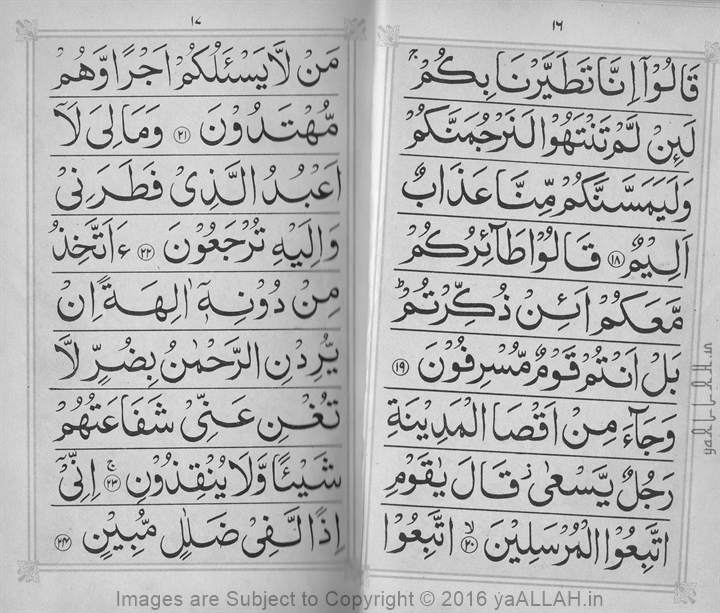 ١٦
قَالُوْٓا اِنَّا تَطَيَّرْنَا بِكُمْ ۚ
لَئِنْ لَّمْ تَنْتَهُوْا لَنَرْجُمَنَّكُمْ
وَلَيَمَسَّنَّكُمْ مِّنَّا عَذَابٌ
اَلِيْمٌ ﴿١٨﴾ قَالُوْا طَآئِرُكُمْ
مَّعَكُمْ اَئِنْ ذُكِّرْتُمْ ؕ
بَلْ اَنْتُمْ قَوْمٌ مُّسْرِفُوْنَ ﴿١٩﴾
وَجَآءَ مِنْ اَقْصَا الْمَدِيْنَةِ
رَجُلٌ يَّسْعٰى ۫ قَالَ يٰقَوْمِ
اتَّبِعُوا الْمُرْسَلِيْنَ ﴿٢٠﴾ ۙ اتَّبِعُوْا
١٧
مَنْ لَّا يَسْئَلُكُمْ اَجْرًا وَّهُمْ
مُّهْتَدُوْنَ ﴿٢١﴾ وَمَا لِىَ لَآ
اَعْبُدُ الَّذِىْ فَطَرَنِىْ
وَاِلَيْهِ تُرْجَعُوْنَ ﴿٢٢﴾ ءَاَتَّخِذُ
مِنْ دُوْنِهٖٓ اٰلِهَةً اِنْ
يُّرِدْنِ الرَّحْمٰنُ بِضُرٍّ لَّا
تُغْنِ عَنِّىْ شَفَاعَتُهُمْ
شَيْئًا وَّلَا يُنْقِذُوْنِ ﴿٢٣﴾ ۚ اِنِّىْٓ
اِذًا لَّفِىْ ضَلٰلٍ مُّبِيْنٍ ﴿٢٤﴾
yaALLAH.in
Images are Subject to Copyright © 2016 yaALLAH.in